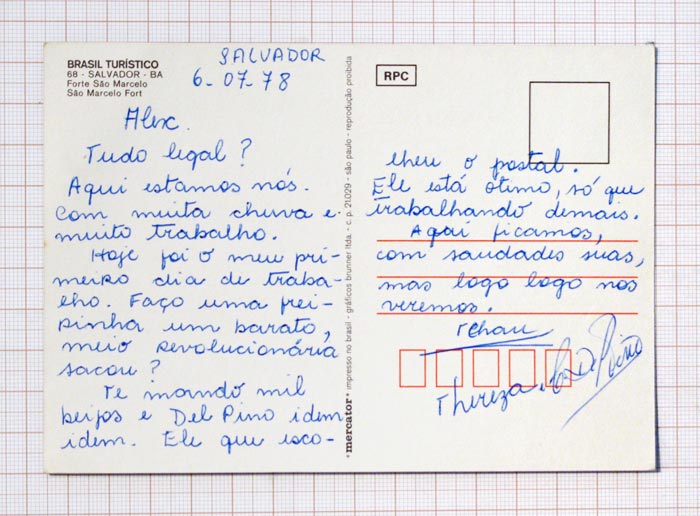 BRASIL TURÍSTICO
68 - SALVADOR - BA
Forte São Marcelo
São Marcelo Fort
SALVADOR
6-07-78
Alex.
Tudo legal?
Aqui estamos nós.
Com muita chuva e
muito trabalho.
Hoje foi o meu pri-
meiro dia de traba-
lho. Faço uma frei-
rinha um barato,
meio revolucionária
sacou?
Te mando mil
beijos e Del Pino idem
idem. Ele que esco-
"mercator" impresso no brasil - gráficos brunner ltda. - c. p. 210/29 - são paulo - reprodução proibida
RPC
lheu o postal.
Ele está ótimo, só que
trabalhando demais.
Aqui ficamos,
com saudades suas,
mas logo logo nos
veremos.
Tchau
Thereza. Del Pino